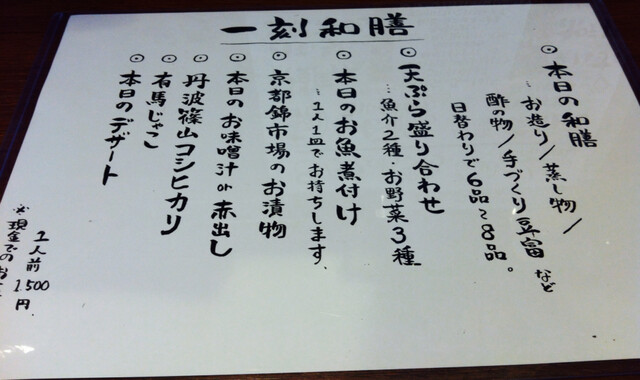 一刻和膳
◉ 本日の和膳
… お造り／蒸し物／
酢の物／手づくり豆富 など
日替わりで6品~8品。
◉ 天ぷら盛り合わせ
… 魚介2種・お野菜3種
◉ 本日のお魚煮付け
… 1人1皿でお持ちします、
◉ 京都錦市場のお漬物
◉ 本日のお味噌汁 or 赤出し
◉ 丹波篠山コシヒカリ
◉ 有馬じゃこ
◉ 本日のデザート
1人前 1,500円.
※ 現金でのお